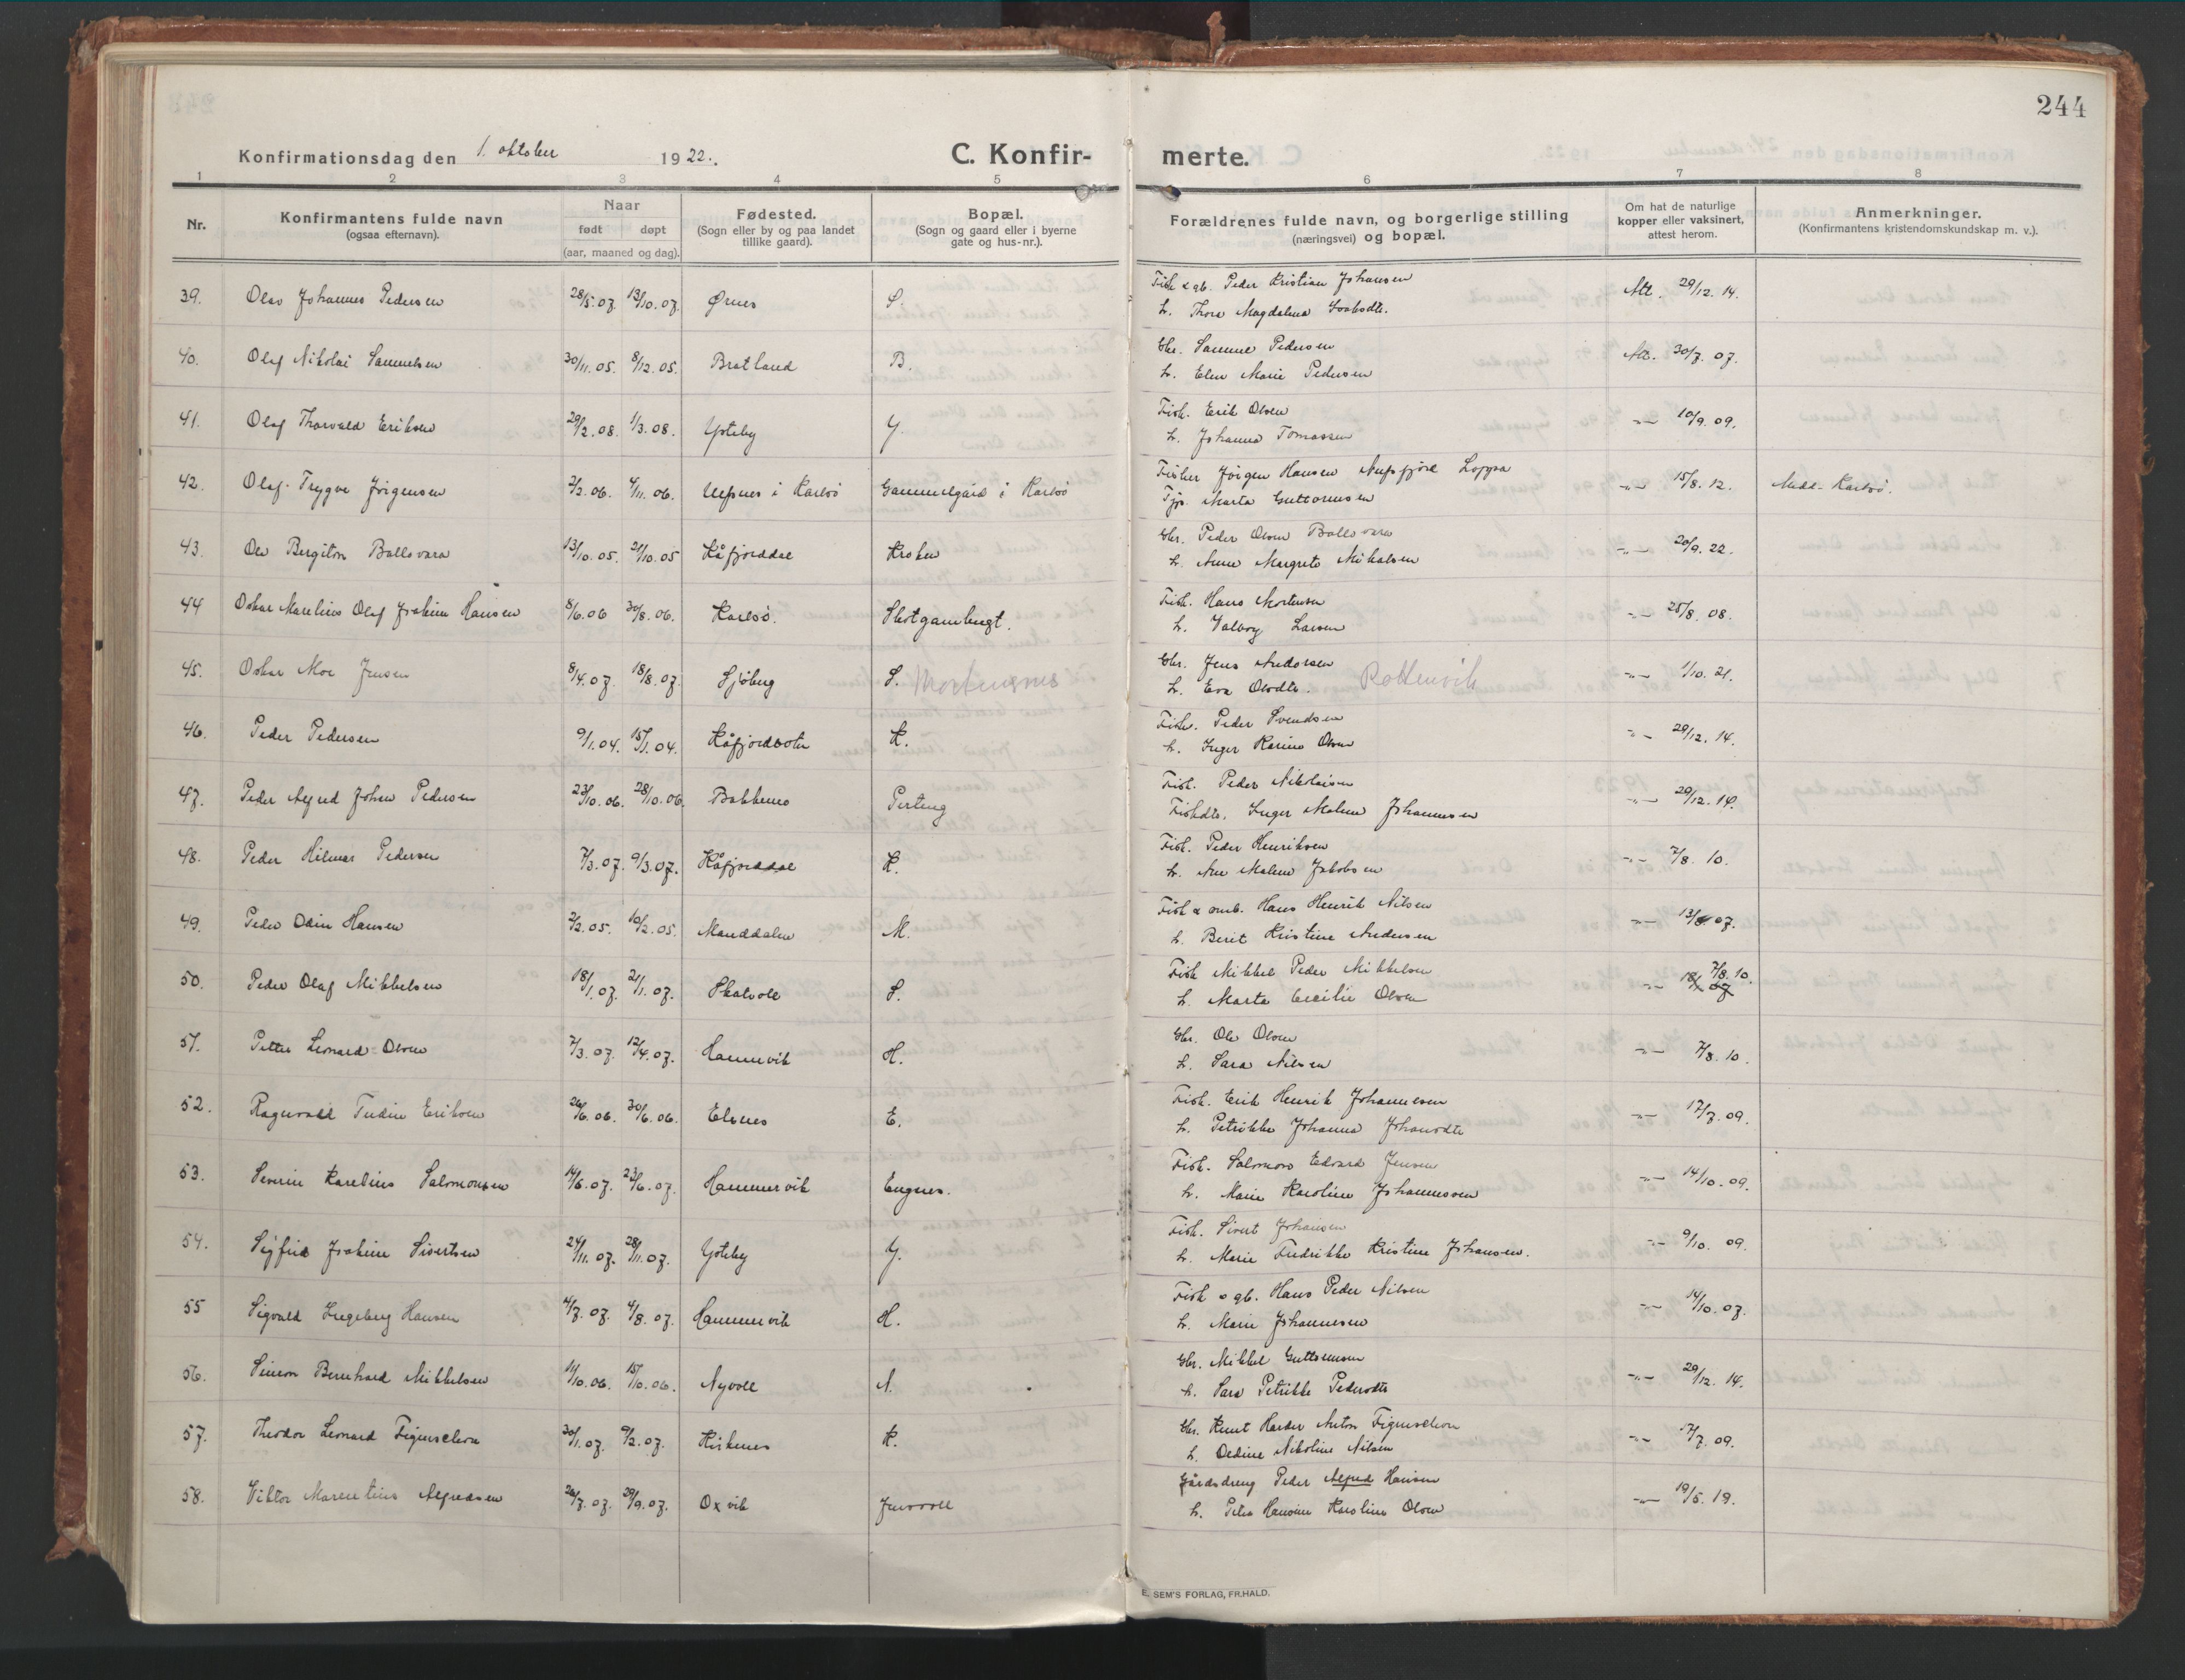 244
Konfirmationsdag den 1. oktober 1922.
C. Konfir-merte.
1 2 3 4 5 6 7 8
Nr.
Konfirmantens fulde navn
(ogsaa efternavn).
Naar
født døpt
(aar, maaned og dag).
Fødested.
(Sogn eller by og paa landet
tillike gaard).
Bopæl.
(Sogn og gaard eller i byerne
gate og hus-nr.).
Forældrenes fulde navn, og borgerlige stilling
(næringsvei) og bopæl.
Om hat de naturlige
kopper eller vaksinert,
attest herom.
Anmerkninger.
(Konfirmantens kristendomskundskap m. v.).
39. Olav Johannes Pedersen 28/5.07. 13/10.07. Ørnes S. Fisk & gb. Peder Kristian Johansen Att. 29/12.14.
h. Thora Magdalena
40. Olaf Nikolai Samuelsen 30/11.05. 8/12.05. Bratland B. Gbr. Samuel Pedersen Att. 30/7.07.
h. Elen Marie Pedersen
41. Olaf Thorvald Eriksen 29/2.08. 1/3.08. Yteby Y. Fisk. Erik Olsen -"- 10/9.09.
h. Johanna Tomassen
42. Olaf Trygve Jörgensen 2/2.06. 4/11.06. i Karlsö Gammelgård i Karlsö Fisker Jörgen Hansen Loppa -"- 15/8.12. Karlsö.
Tjp. Marta Guttormsen
43. Ole Bergiton Ballovara 13/10.05. 21/10.05 Kåfjorddal Kroken Gbr. Peder Olsen Ballovara -"- 20/9.22.
h. Anne Margrete Mikalsen
44 Oskar Marelius Olaf Joakim Hansen 8/6.06 30/8.06. Karlsö. Skotgambugt. Fisk. Hans Mortensen -"- 25/8.08.
h. Valborg Larsen
45. Oskar Moe Jensen 8/4.07. 18/8.07. Sjöberg S. Mortensnes Gbr. Jens Andersen Rottenvik -"- 1/10.21.
h. Eva Olsdtr.
46. Peder Pedersen 9/1.04. 15/1.04. Kåfjordbotn K. Fisk. Peder Svendsen -"- 29/12.14.
h. Inger Karine Olsen
47. Peder Alfred Johan Pedersen 23/10.06. 28/10.06. Bakkenes Perteng Fisk. Peder Nikolaisen -"- 29/12.14.
Fiskdtr. Inger Malene Johannesen
48. Peder Hilmar Pedersen 7/3.07. 9/3.07. Kåfjorddal K. Fisk. Peder Henriksen -"- 7/8.10.
h. Ane Malene Jakobsen
49. Peder Odin Hansen 2/2.05. 10/2.05. Manddalen M. Fisk & smb. Hans Henrik Nilsen -"- 13/8.07.
h. Berit Kristine Andersen
50. Peder Olaf Mikkelsen 18/1.07. 21/1.07. Skatvold S. Fisk Mikkel Peder Mikkelsen -"- 7/8.10.
h. Marta Cecilie Olsen
51. Petter Leonard Olsen 7/3.07. 12/4.07. Hamnvik H. Gbr. Ole Olsen -"- 7/8.10.
h. Sara Nilsen
52. Ragnvald Tudin Eriksen 26/6.06. 30/6.06. Elsnes E. Fisk. Erik Henrik Johannesen -"- 17/7.09.
h. Petrikke Johanna Johansdtr
53. Severin Karelius Salomonsen 14/6.07. 23/6.07. Hammervik Engnes. Fisk. Salomon Edvard Jensen -"- 14/10.09.
h. Marie Karoline Johannessen
54. Sigfrid Joakim Sivertsen 24/11.07. 28/11.07. Yteby Y. Fisk. Sivert Johansen -"- 9/10.09.
h. Marie Fredrikke Kristine Johansen.
55 Sigvald Ingeberg Hansen 4/7.07. 4/8.07. Hammervik H. Fisk & gb. Hans Peder Nilsen -"- 14/10.07.
h. Marie Johannesen
56. Simon Bernhard Mikkelsen 11/10.06. 15/10.06. Nyvoll N. Gbr. Mikkel Guttormsen -"- 29/12.14.
h. Sara Petrikke Pedersdtr
57. Theodor Leonard Figenschou 30/1.07. 9/2.07. Kirkenes K. Gbr. Knut Harder Anton Figenschou -"- 17/7.09.
h. Oedine Nikoline Nilsen
58. Viktor Marentius Alfredsen 26/7.07. 29/9.07. Oxvik Jensvoll Gårdsdreng Peder Alfred Hansen -"- 19/5.19.
h. Petra Hansine Karoline Olsen
E. SEM'S FORLAG, FR.HALD.